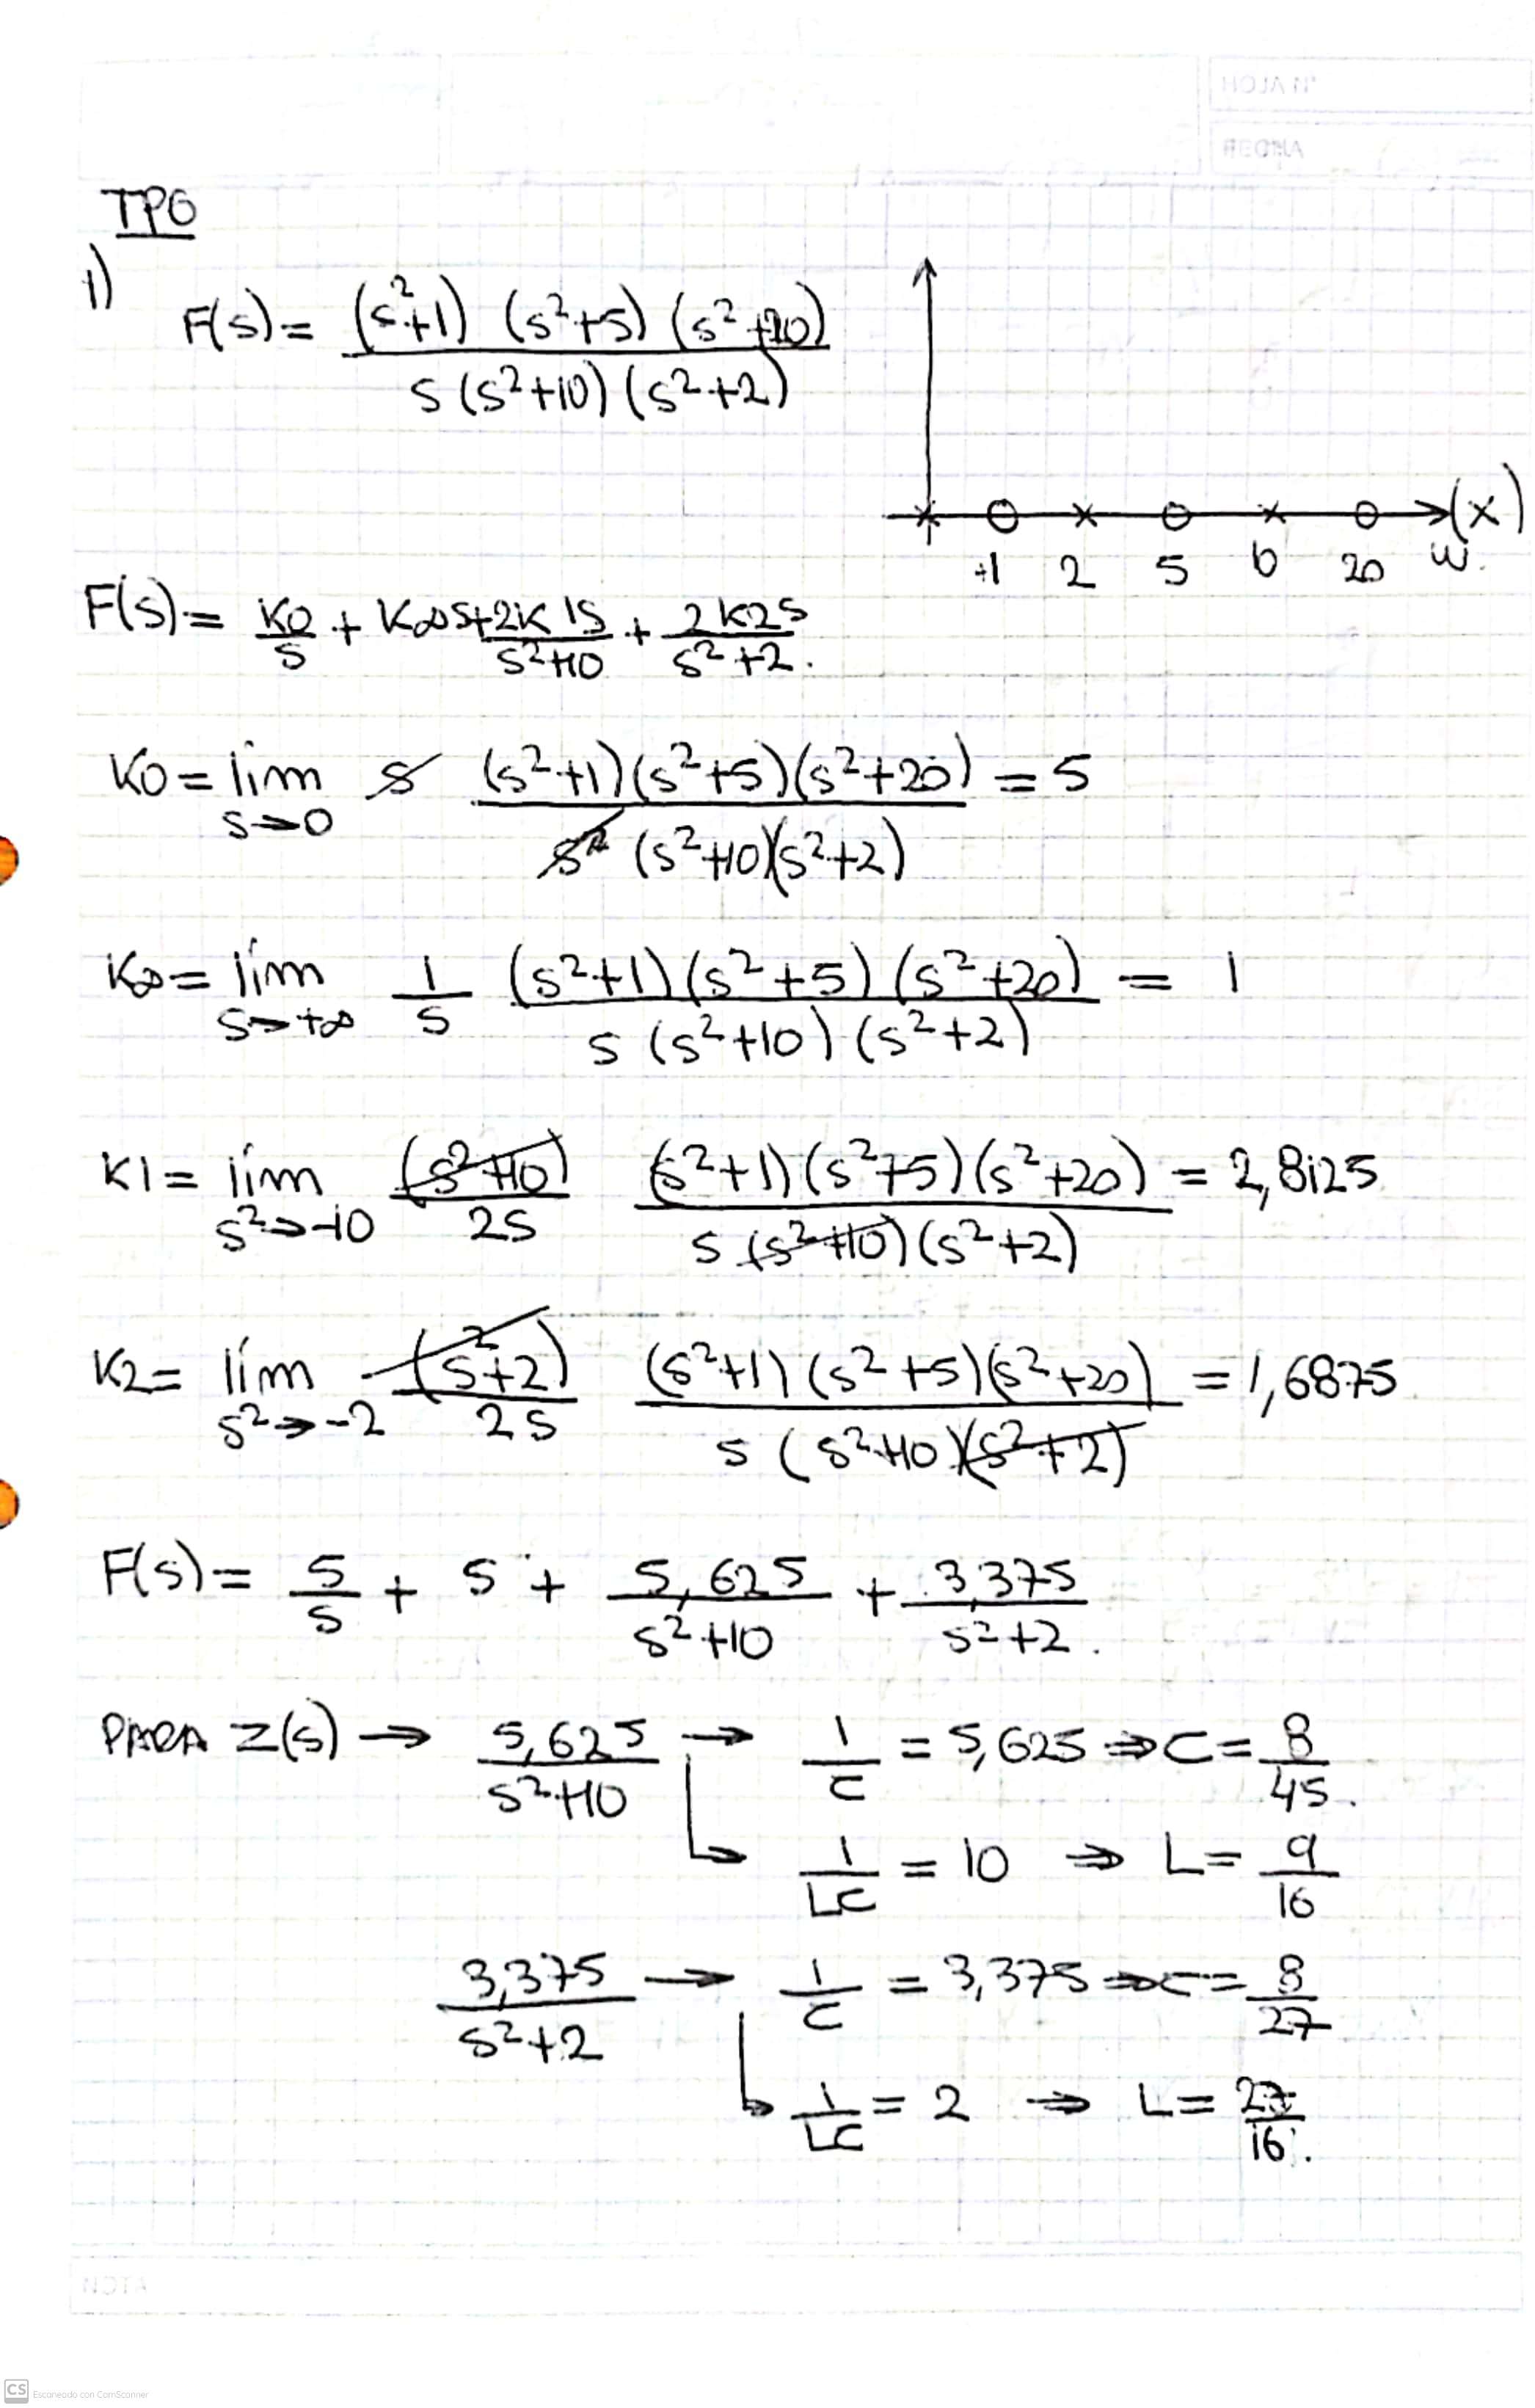 TP6
1)
F(s) = (s²+1) (s²+5) (s²+20) / s (s²+10) (s²+2)
+1 2 5 10 20 (x) w.
F(s) = K0/s + K∞s + 2K1s/s²+10 + 2K2s/s²+2.
K0 = lim s→0 s (s²+1)(s²+5)(s²+20) / s (s²+10)(s²+2) = 5
K∞ = lim s→+∞ 1/s (s²+1)(s²+5)(s²+20) / s (s²+10)(s²+2) = 1
K1 = lim s²→-10 (s²+10)/2s (s²+1)(s²+5)(s²+20) / s (s²+10)(s²+2) = 2,8125
K2 = lim s²→-2 (s²+2)/2s (s²+1)(s²+5)(s²+20) / s (s²+10)(s²+2) = 1,6875
F(s) = 5/s + s + 5,625/s²+10 + 3,375/s²+2.
PARA Z(s) → 5,625/s²+10 → 1/C = 5,625 ⇒ C = 8/45.
↳ 1/LC = 10 ⇒ L = 9/16
3,375/s²+2 → 1/C = 3,375 ⇒ C = 8/27
↳ 1/LC = 2 ⇒ L = 27/16.
CS Escaneado con CamScanner